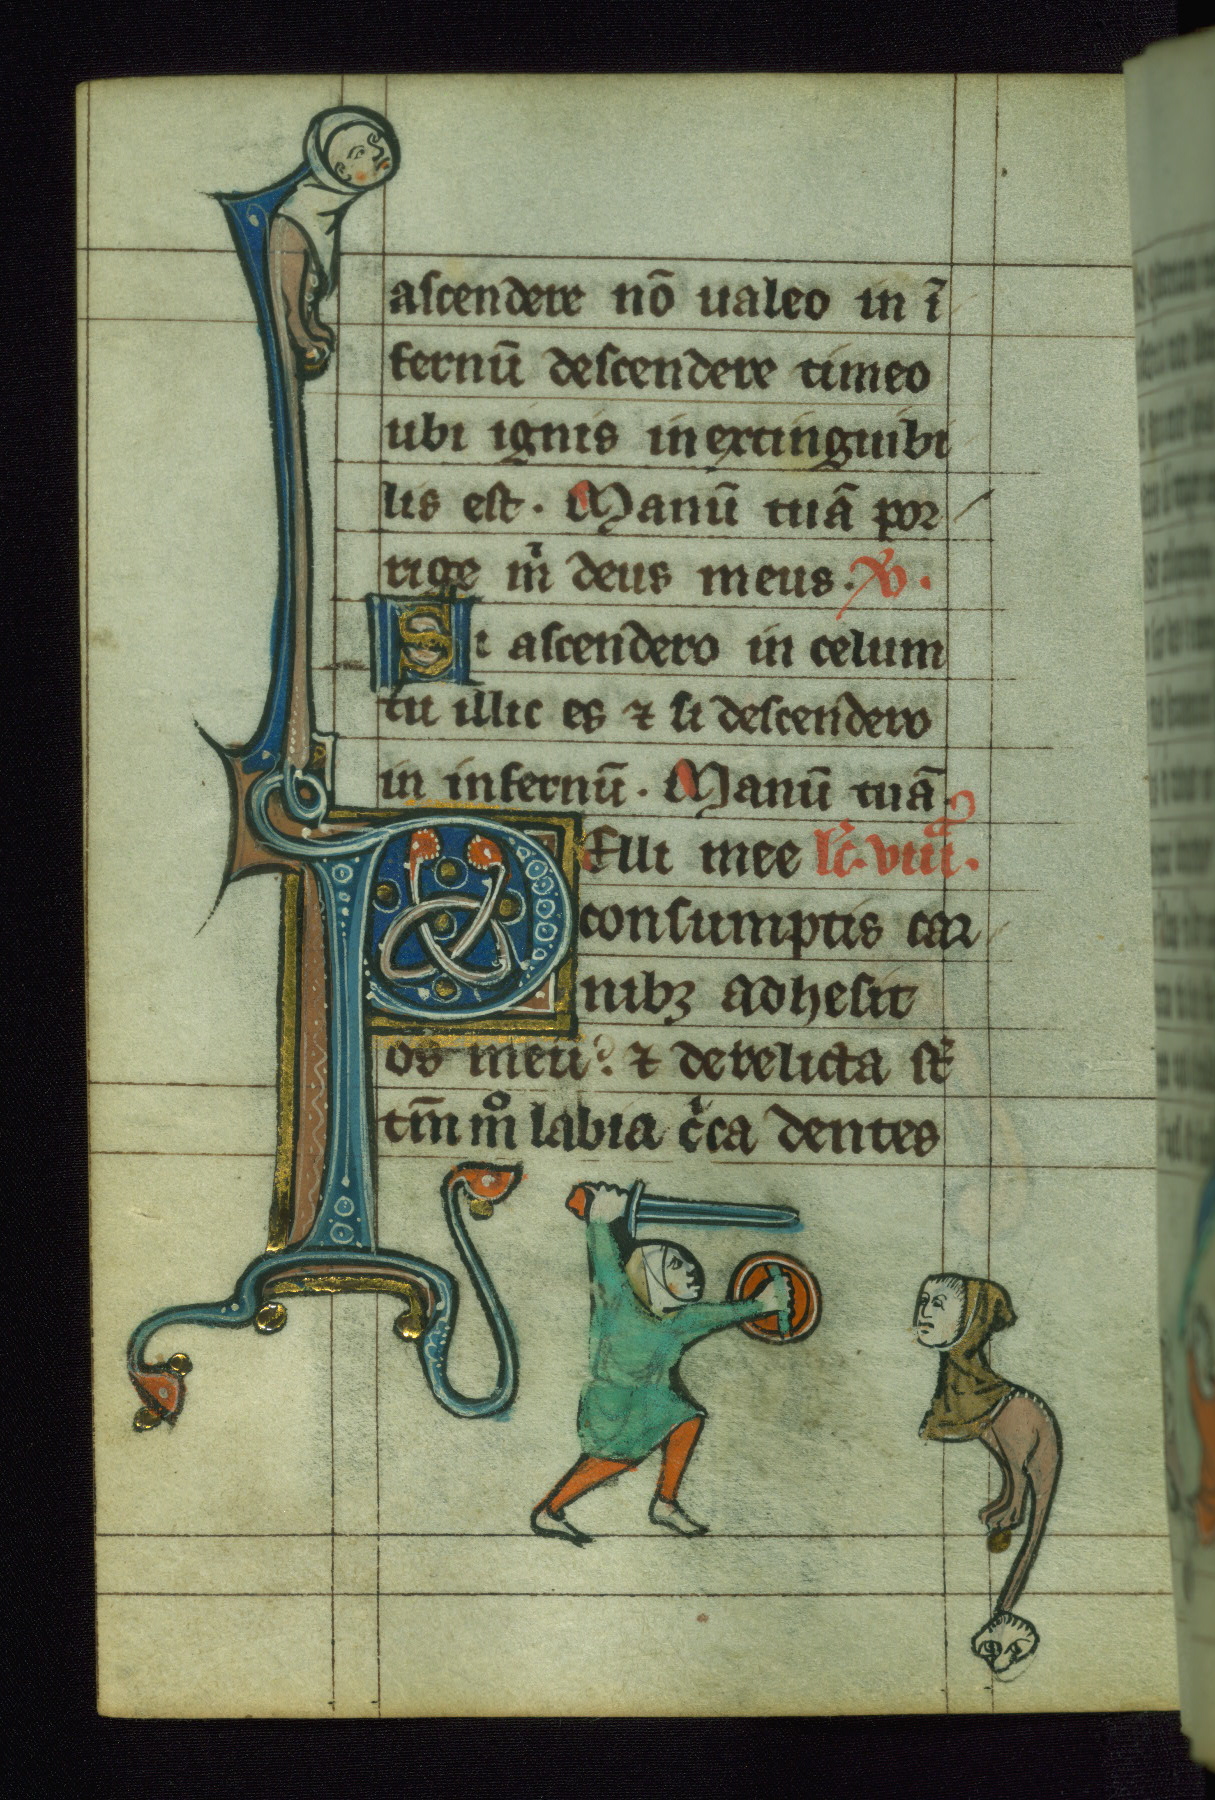 ascendere nō ualeo in ī
fernū descendere timeo
ubi ignis inextinguibi
lis est. Manū tuā por
rige m̍ deus meus. V̍.
Si ascendero in celum
tu illic es ⁊ si descendero
in infernū. Manū tuā.
Pelli mee lc̄. viii.
consumptis car
nibꝫ adhesit
os meū. ⁊ derelicta st̄
tm̄m° labia c̍ca dentes